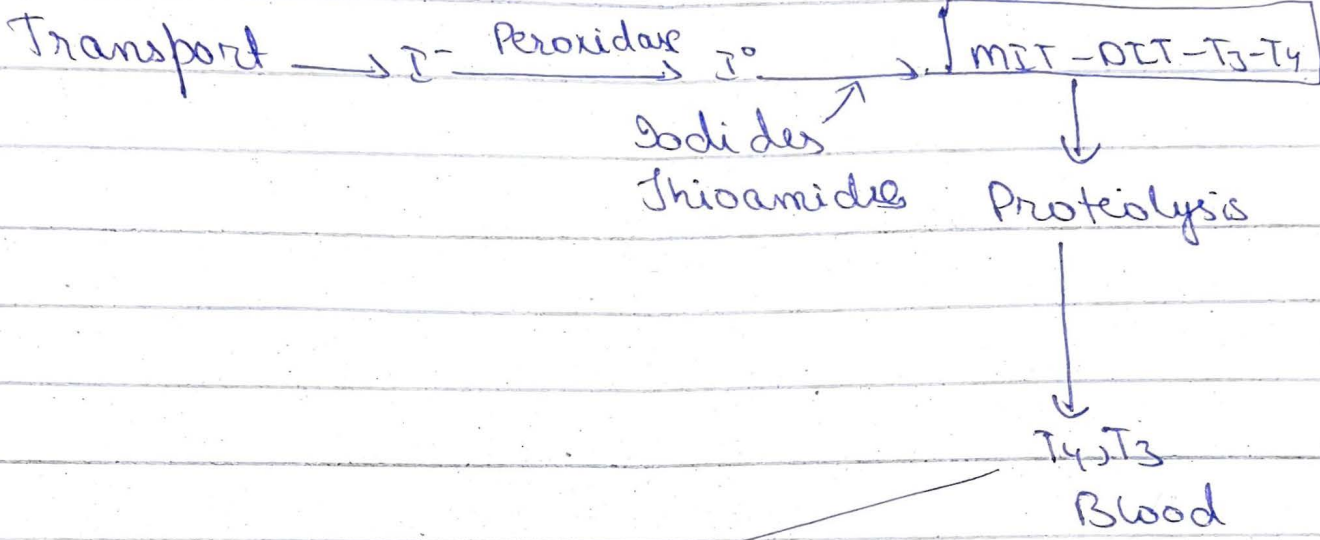 Transport → I⁻ Peroxidase → I° → MIT-DIT-T3-T4
Iodides
Thioamides Proteolysis
T4, T3
Blood